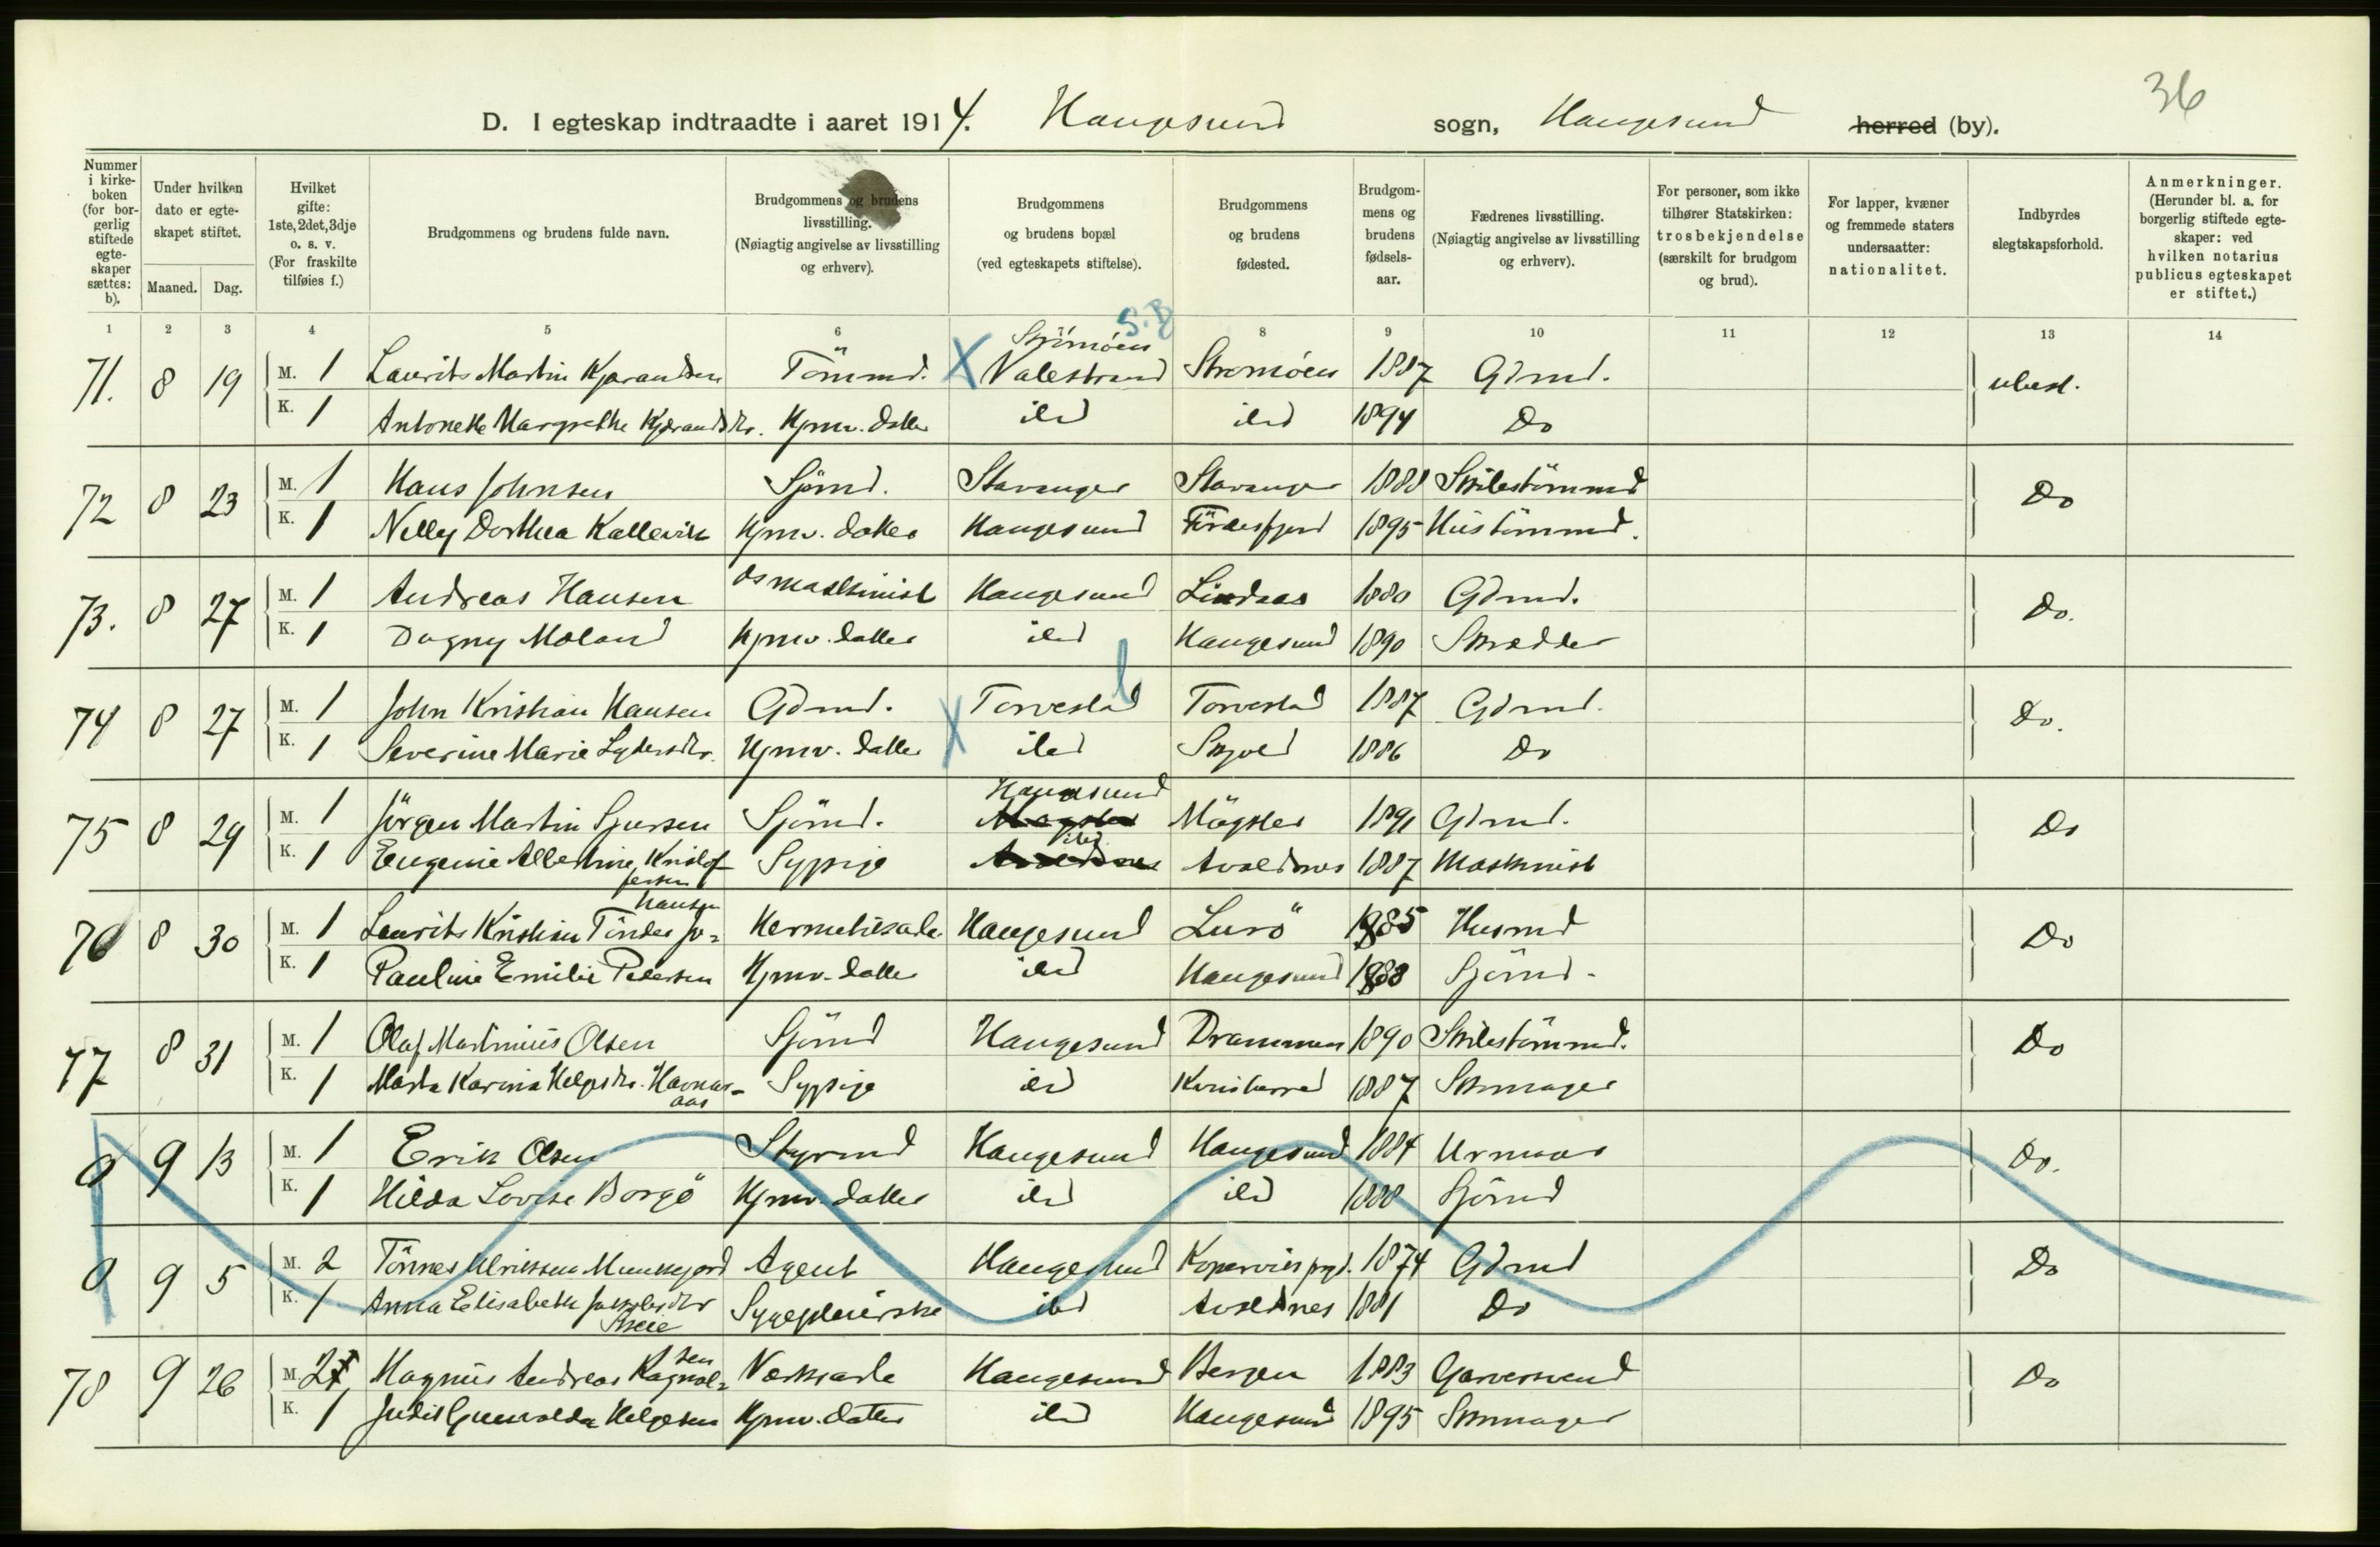 36
D. I egteskap indtraadte i aaret 1914. Haugesund sogn, Haugesund herred (by).
Nummer i kirkeboken (for borgerlig stiftede egteskaper sættes: b).
Under hvilken dato er egteskapet stiftet.
Maaned. Dag.
Hvilket gifte: 1ste, 2det, 3dje o. s. v. (For fraskilte tilføies f.)
Brudgommens og brudens fulde navn.
Brudgommens og brudens livsstilling. (Nøiagtig angivelse av livsstilling og erhverv).
Brudgommens og brudens bopæl (ved egteskapets stiftelse).
Brudgommens og brudens fødested.
Brudgommens og brudens fødselsaar.
Fædrenes livsstilling. (Nøiagtig angivelse av livsstilling og erhverv).
For personer, som ikke tilhører Statskirken: trosbekjendelse (særskilt for brudgom og brud).
For lapper, kvæner og fremmede staters undersaatter: nationalitet.
Indbyrdes slegtskapsforhold.
Anmerkninger. (Herunder bl. a. for borgerlig stiftede egteskaper: ved hvilken notarius publicus egteskapet er stiftet.)
1 2 3 4 5 6 8 9 10 11 12 13 14
S.B
Strömöen
71. 8 19 M. 1 Laurits Martin Kjærandsen Tömmd. X Valestrand Strömöen 1887 Gdmd. ubesl.
K. 1 Antonette Margrethe Kjærandsdtr. Hjmv. datter ibd ibd 1894 Do
72 8 23 M. 1 Hans Johnsen Sjömd. Stavanger Stavanger 1888 Skibstömmmd Do
K. 1 Nelly Dorthea Kallevik Hjmv. datter Haugesund Fördesfjord 1895 Hustömmd.
73. 8 27 M. 1 Andreas Hansen Dsmaskinist Haugesund Lindaas 1880 Gdmd. Do.
K. 1 Dagny Moland Hjmv. datter ibd Haugesund 1890 Skrædder
74 8 27 M. 1 John Kristian Hansen Gdmd. X Torvestad b Torvestad 1887 Gdmd. Do.
K. 1 Severine Marie Lydersdtr. Hjmv. datter ibd Skjold 1886 Do
Haugesund
75 8 29 M. 1 Jörgen Martin Sjursen Sjömd. Mögster Mögster 1891 Gdmd. Do
ibd
K. 1 Eugenie Albertine Kristof Sypige Avaldsnes Avaldsnes 1887 Maskinist
fersen
Hansen
76 8 30 M. 1 Laurits Kristian Tindes Jo= Hermetikarb. Haugesund Lurö 1885 Husmd Do
K. 1 Pauline Emilie Pedersen Hjmv. datter ibd Haugesund 1888 Sjömd.
77 8 31 M. 1 Olaf Martinius Olsen Sjömd Haugesund Drammen 1890 Skibstömmd. Do
K. 1 Marta Karina Helgesdtr. Havnaas Sypige ibd Kvinherred 1887 Skomager
0 9 13 M. 1 Erik Olsen Styrmd Haugesund Haugesund 1884 Urmaker Do.
K. 1 Hilda Lovise Borgö Hjmv. datter ibd ibd 1888 Sjömd
0 9 5 M. 2 Tönnes Ulriksen Munkejord Agent Haugesund Kopervik prgd. 1874 Gdmd Do
K. 1 Anna Elisabeth Jakobsdtr Sygepleierske ibd Avaldsnes 1881 Do
sen
78 9 26 M. 2f Magnus Andreas Ragnal= Verksarb Haugesund Bergen 1883 Garversvend Do
K. 1 Judit Gunvalda Helgesen Hjmv. datter ibd Haugesund 1895 Skomager